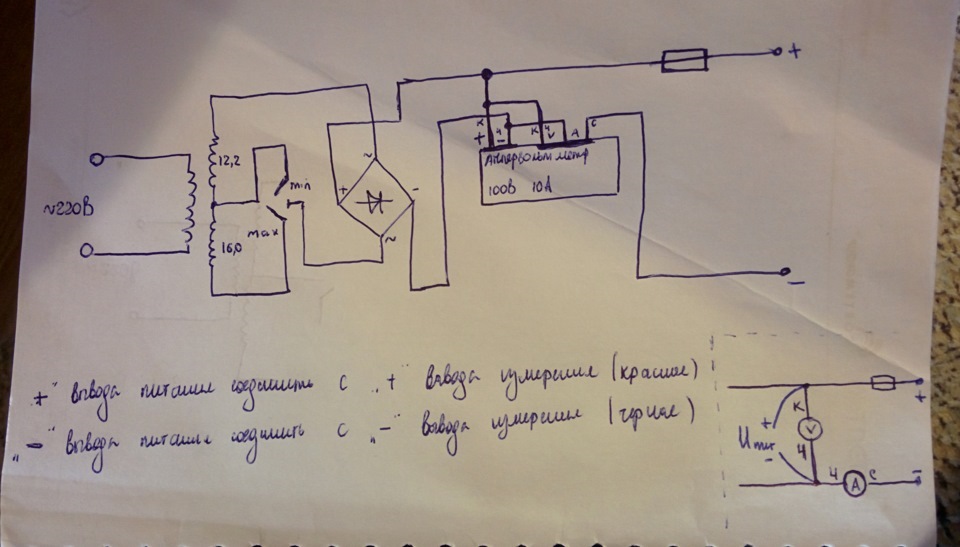 +
К
+
Ч
−
К
Ч
V
А
С
Ампервольтметр
100В 10А
12,2
~
min
+
−
~220В
max
16,0
~
−
„+" вывода питания соединить с „+" вывода измерения (красное)
„−" вывода питания соединить с „−" вывода измерения (черное)
+
К
+
V
Uпит
Ч
−
Ч
А
С
−